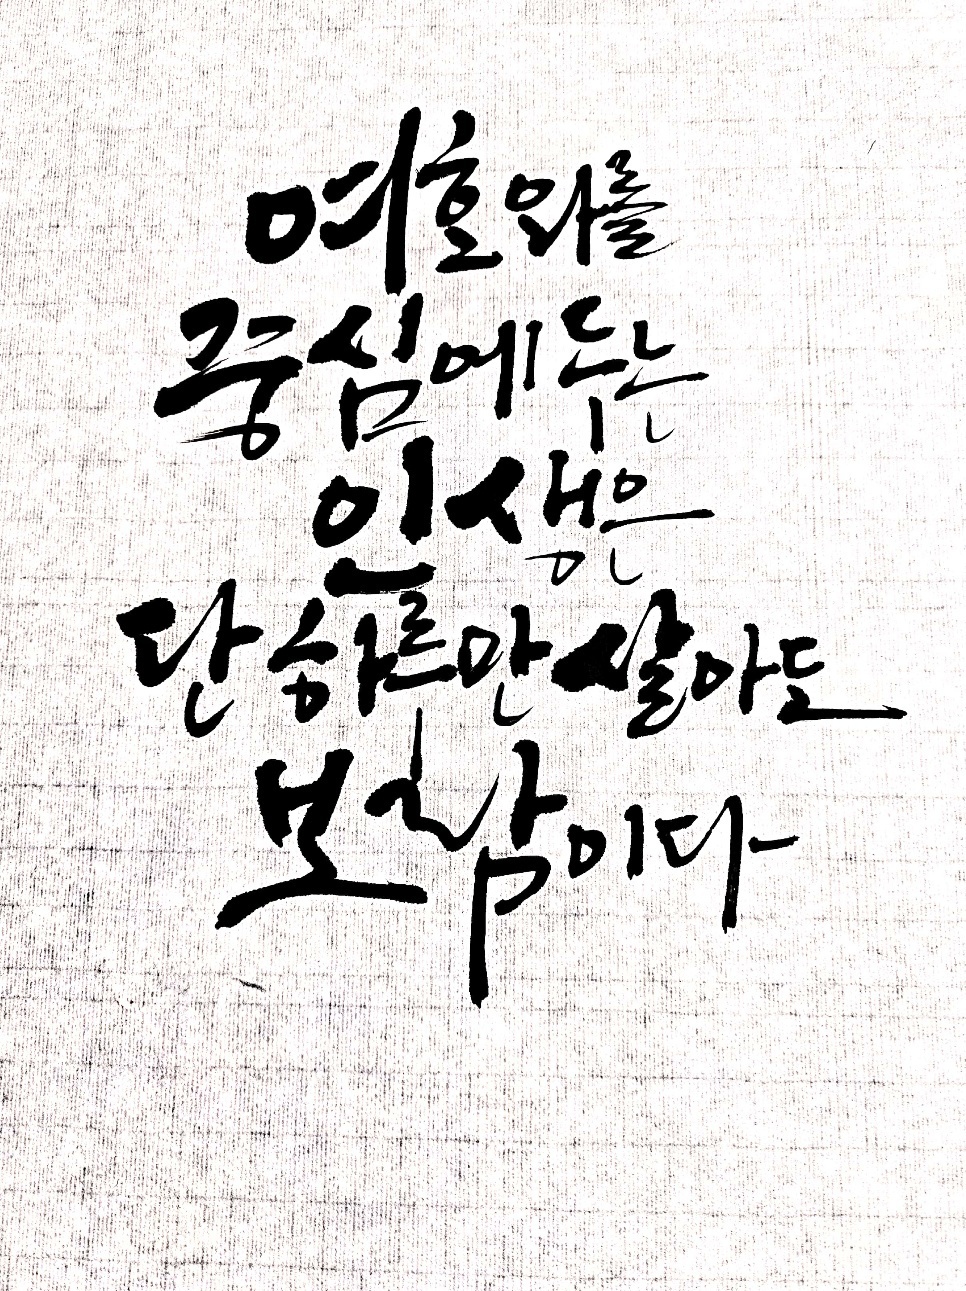 여호와를
중심에 두는
인생은
단 하루만 살아도
보람이다